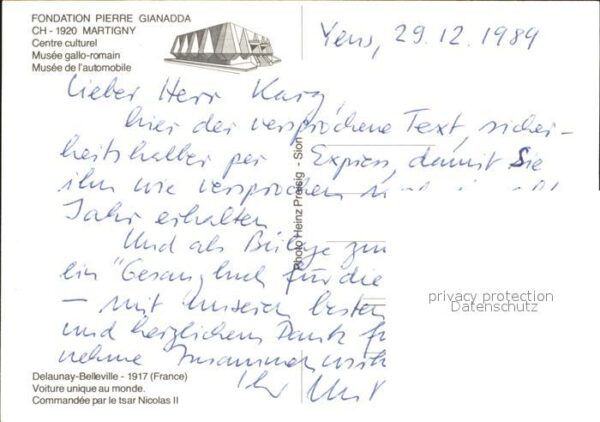 FONDATION PIERRE GIANADDA
CH - 1920 MARTIGNY
Centre culturel
Musée gallo-romain
Musée de l'automobile
Yens, 29.12.1989
Lieber Herr Karg,
hier der versprochene Text, sicher-
heitshalber per Express, damit Sie
ihn wie versprochen
Jahr erhalten
Und als Beilage zum
ein "Gesangbuch für die
– mit unseren besten
und herzlichem Dank
nehme Zusammen
Ihr
Photo Heinz Preisig - Sion
privacy protection
Datenschutz
Delaunay-Belleville - 1917 (France)
Voiture unique au monde.
Commandée par le tsar Nicolas II